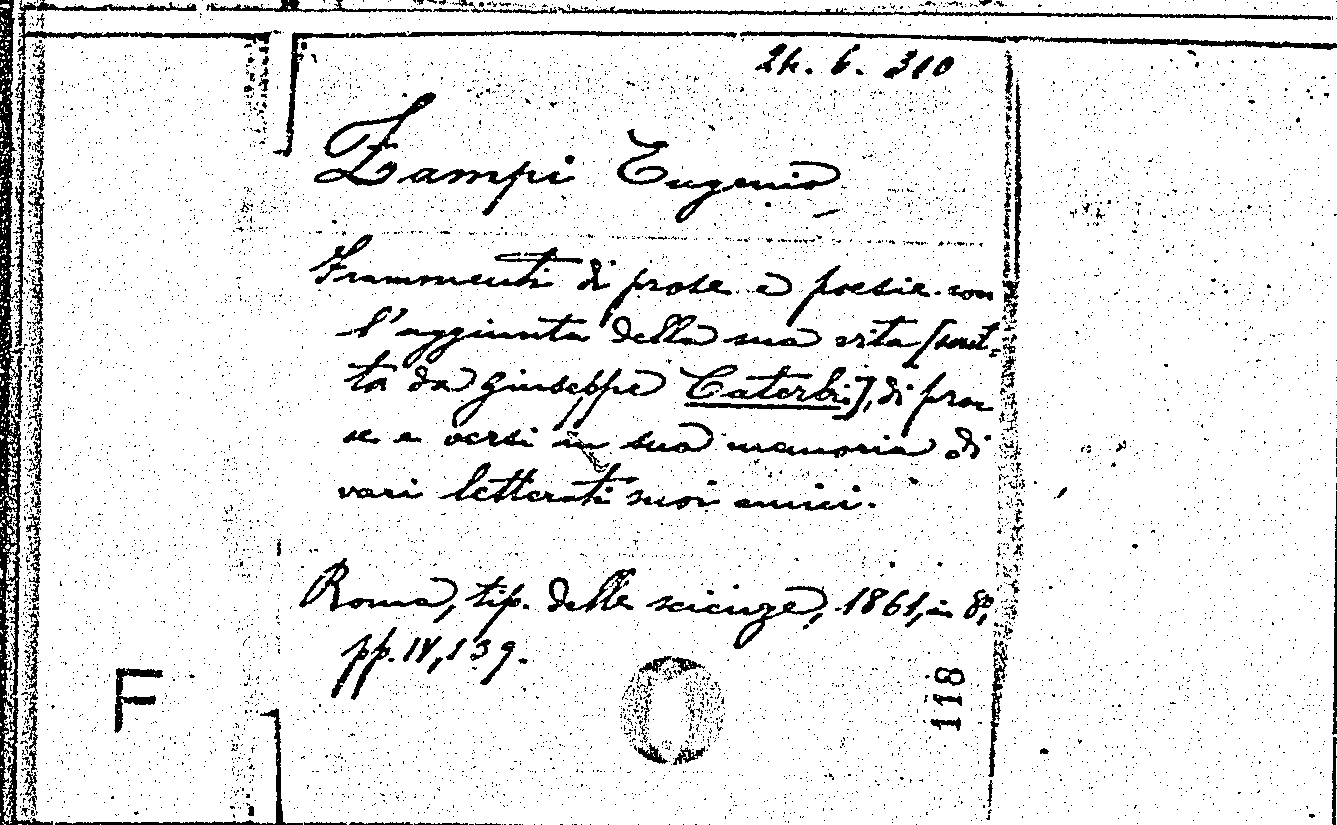 24. 6. 310
Zampi Eugenio
Frammenti di prose e poesie con
l'aggiunta della sua vita [scrit-
ta da Giuseppe Caterbi], di pro
se e versi in sua memoria di
vari letterati suoi amici.
Roma, tip. delle scienze, 1861, in 8º,
pp. IV, 139.
F
118